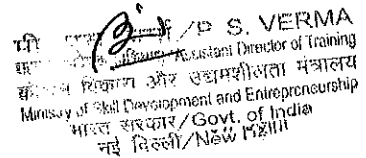 पी /P S. VERMA
Assistant Director of Training
विकास और उद्यमशीलता मंत्रालय
Ministry of Skill Development and Entrepreneurship
भारत सरकार/Govt. of India
नई दिल्ली/New